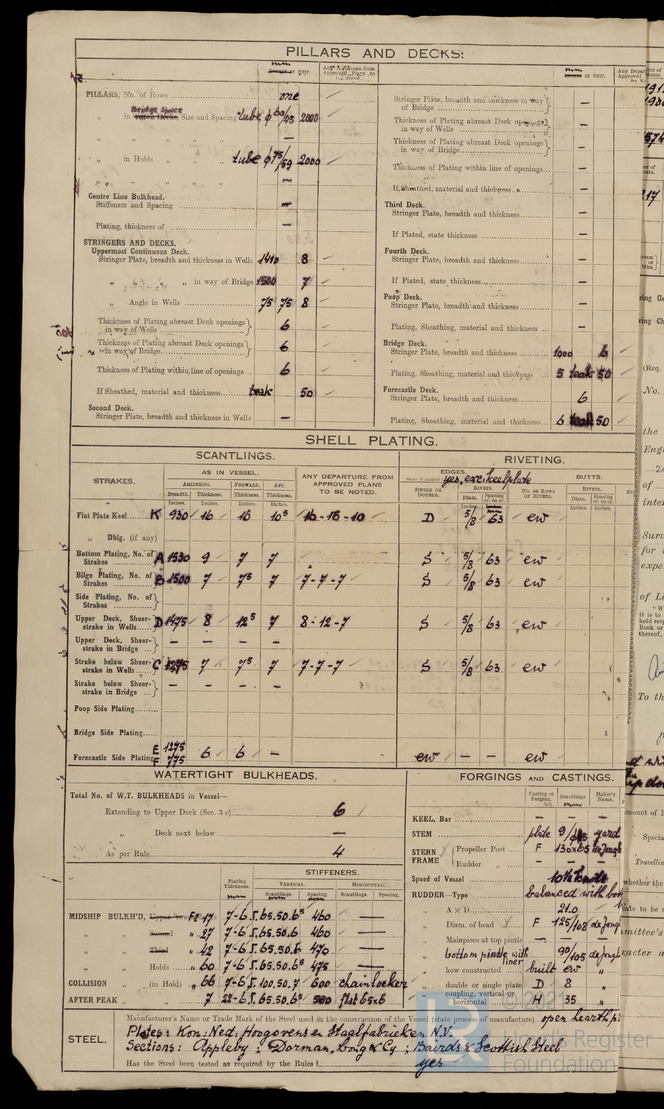 PILLARS AND DECKS.
mm
Any Departure from Approved Plans to be Noted.
PILLARS, No. of Rows one
" in Bridge Space Size and Spacing tube φ 60/45 2000
" in Holds " " tube φ 75/59 2000
Centre Line Bulkhead.
Stiffeners and Spacing —
Plating, thickness of —
STRINGERS AND DECKS.
Uppermost Continuous Deck.
Stringer Plate, breadth and thickness in Wells 1410 8
" " " " in way of Bridge 1500 7
" Angle in Wells 75 75 8
Thickness of Plating abreast Deck openings in way of Wells 6
Thickness of Plating abreast Deck openings in way of Bridge 6
Thickness of Plating within line of openings 6
If Sheathed, material and thickness teak 50
Second Deck.
Stringer Plate, breadth and thickness in Wells —
Stringer Plate, breadth and thickness in way of Bridge —
Thickness of Plating abreast Deck openings in way of Wells —
Thickness of Plating abreast Deck openings in way of Bridge —
Thickness of Plating within line of openings —
If Sheathed, material and thickness —
Third Deck.
Stringer Plate, breadth and thickness —
If Plated, state thickness —
Fourth Deck.
Stringer Plate, breadth and thickness —
If Plated, state thickness —
Poop Deck.
Stringer Plate, breadth and thickness —
Plating, Sheathing, material and thickness —
Bridge Deck.
Stringer Plate, breadth and thickness 1000 6
Plating, Sheathing, material and thickness 5 teak 50
Forecastle Deck.
Stringer Plate, breadth and thickness 6
Plating, Sheathing, material and thickness 6 teak 50
SHELL PLATING.
SCANTLINGS. RIVETING.
STRAKES. AS IN VESSEL. ANY DEPARTURE FROM APPROVED PLANS TO BE NOTED. EDGES. BUTTS.
yes, exc. keelplate
AMIDSHIPS. FORWARD. AFT. SINGLE OR DOUBLE. RIVETS. NO. OF ROWS OF RIVETS. RIVETS.
Breadth. Thickness. Thickness. Thickness. Diam. Spacing cr. to cr. Diam. Spacing cr. to cr.
Flat Plate Keel K 930 16 16 10⁵ 16-16-10 D 5/8 63 ew
" Dblg. (if any)
Bottom Plating, No. of Strakes A 1530 9 7 7 S 5/8 63 ew
Bilge Plating, No. of Strakes B 1500 7 7⁵ 7 7-7-7 S 5/8 63 ew
Side Plating, No. of Strakes
Upper Deck, Sheer-strake in Wells D 1475 8 12⁵ 7 8-12-7 S 5/8 63 ew
Upper Deck, Sheer-strake in Bridge — — — —
Strake below Sheer-strake in Wells C 1275 7 7⁵ 7 7-7-7 S 5/8 63 ew
Strake below Sheer-strake in Bridge — — — —
Poop Side Plating
Bridge Side Plating
Forecastle Side Plating E 1275 F 775 6 6 — ew — — ew
WATERTIGHT BULKHEADS. FORGINGS AND CASTINGS.
Total No. of W.T. BULKHEADS in Vessel—
Extending to Upper Deck (Sec. 3 c) 6
" Deck next below —
" As per Rule 4
STIFFENERS.
Plating Thickness. VERTICAL. HORIZONTAL.
Scantlings. Spacing. Scantlings. Spacing.
MIDSHIP BULKH'D, Fr 17 7-6 65.50.6⁵ 460 —
" " Second " 27 7-6 65.50.6 460 —
" " Third " 42 7-6 65.50.6 470 —
" " Holds " 60 7-6 65.50.6⁵ 475 —
COLLISION " (in Hold) " 66 7-6 100.50.7 600 chainlocker
AFTER PEAK " 7 65.50.6⁵ 500 flat 65x6
Casting or Forging. Scantlings. Maker's Name.
KEEL, Bar — — —
STEM plate yard
STERN FRAME Propeller Post F 130x65 de Jongh
Rudder — — —
Speed of Vessel 10½ knots
RUDDER—Type balanced with
" A × D 21.0
" Diam. of head F 125/108 de Jong
" Mainpiece at top pintle —
" bottom pintle with liner 90/105 de Jongh
" how constructed built ew "
" double or single plate D 8 "
" coupling, vertical or horizontal H 35 "
STEEL. Manufacturer's Name or Trade Mark of the Steel used in the construction of the Vessel (state process of manufacture) open hearth
Plates: Kon: Ned: Hoogovens en Staalfabrieken N.V.
Sections: Appleby; Dorman, Long & Cy; Bairds & Scottish Steel
Has the Steel been tested as required by the Rules yes
Lloyd's Register
Foundation